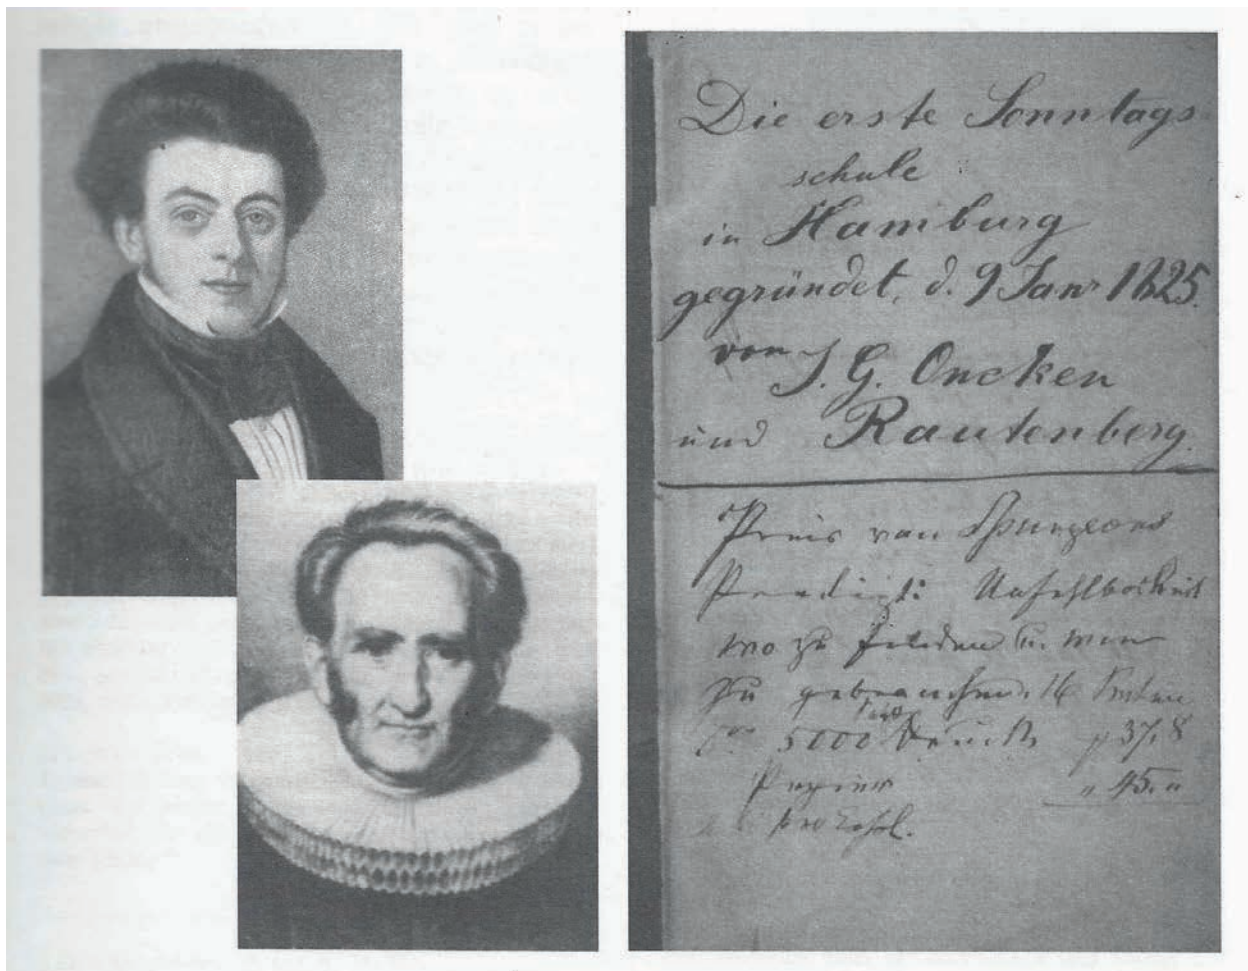 Die erste Sonntags
schule
in Hamburg
gegründet, d. 9 Janr 1825.
von J. G. Oncken
und Rautenberg.
Preis von Spurgeons
Predigt: Unfehlbarkeit
wo zu finden u. wie
zu gebrauchen. 16 Seiten
5000 Druck 37.8
Papier " 45. "